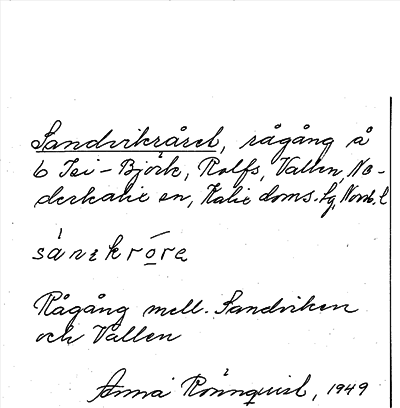 Sandviksrået, rågång å
6 Tei-Björk, Rolfs, Vallen, Ne-
derkalix sn, Kalix doms.lg, Norrb. l
sánvkrö̀ra
Rågång mell. Sandviken
och Vallen
Anna Rönnquist, 1949